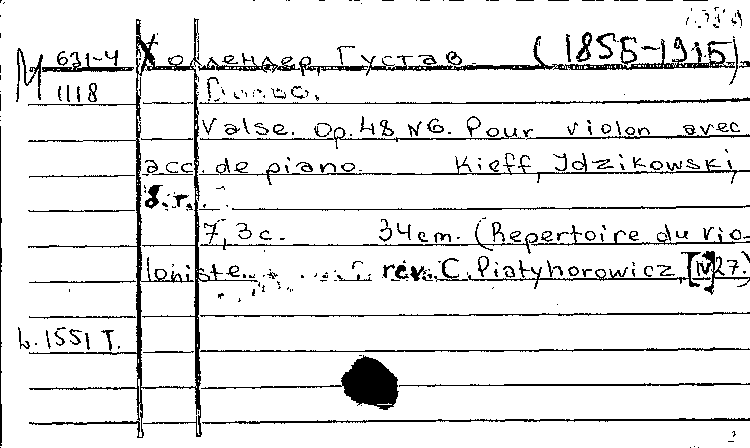 М 631-4 Холлендер, Густав (1855-1915)
1118
Valse. Op.48, N6. Pour violon avec
acc. de piano. Kieff, Idzikowski,
s.r.
7,3 с. 34cm. (Repertoire du vio-
loniste. rév. C. Piatyhorowicz, [N]27.)
b. 1551 T.